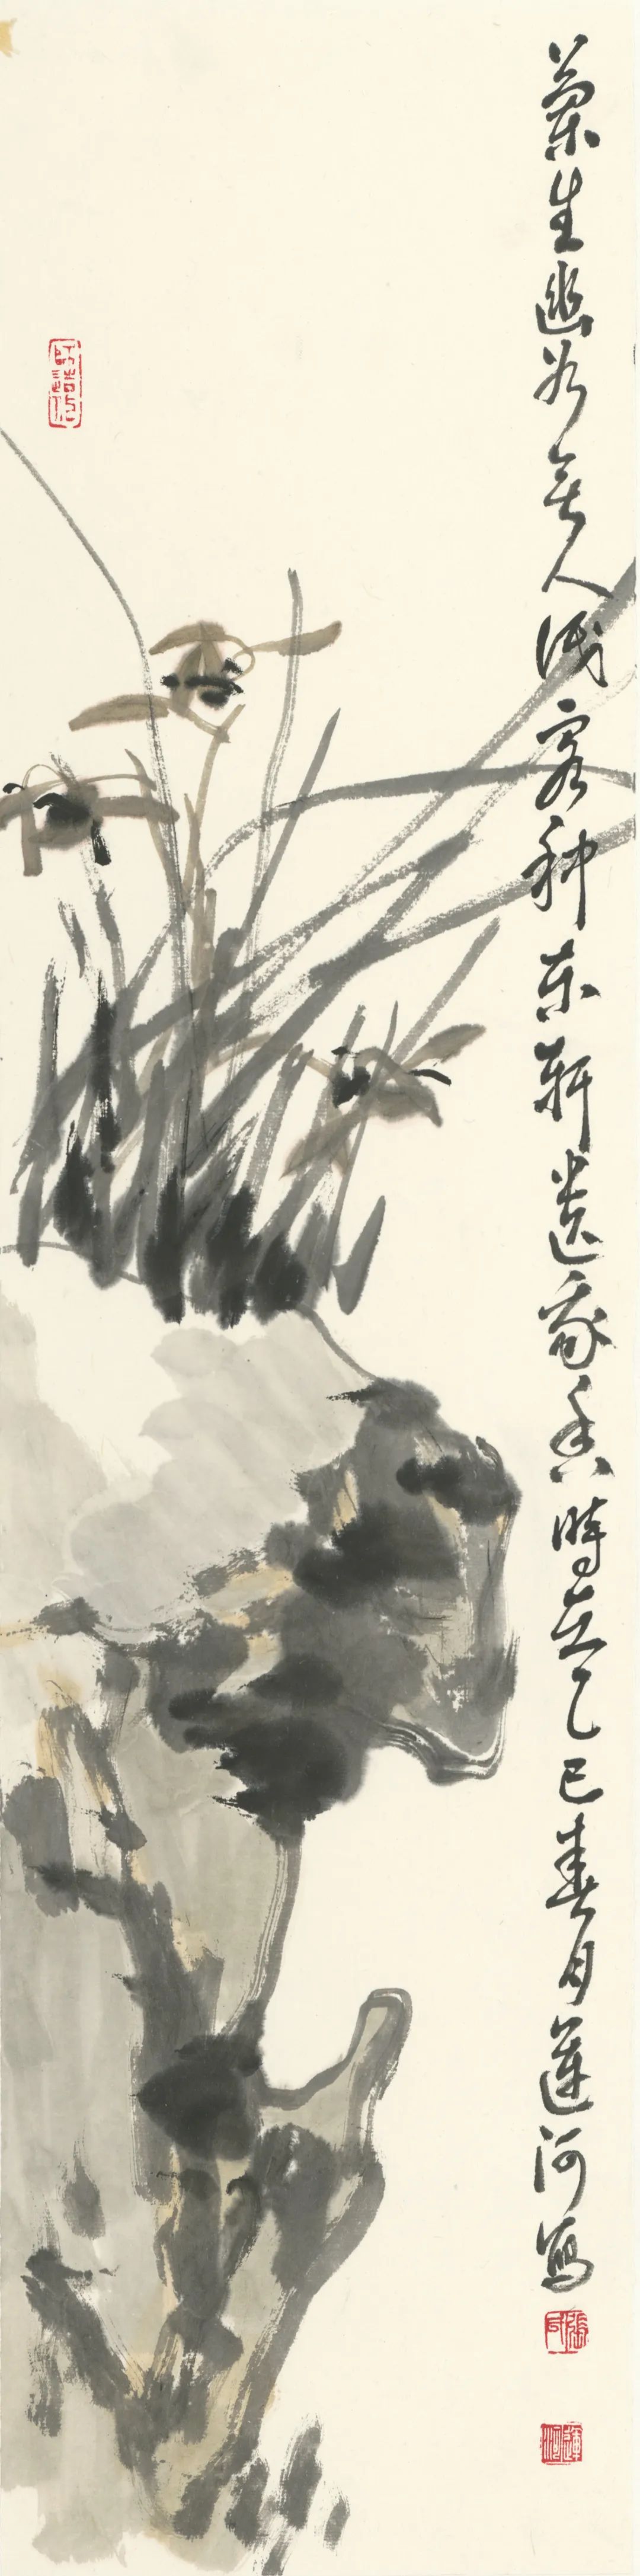 蘭生幽谷無人識客種東軒遺我香時在乙巳春月蓮河寫